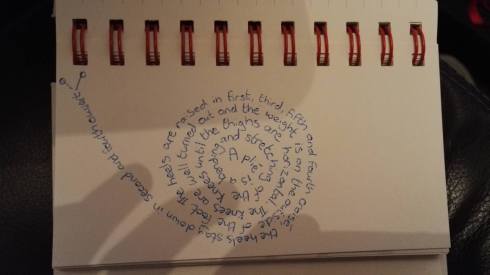 A plié is a bending and stretching of the knees until the thighs are horizontal. The knees are well turned out and the weight is on the outside of the foot. The heels are raised in first, third, fifth and fourth croisé the heels stay down in second and fourth ouverte